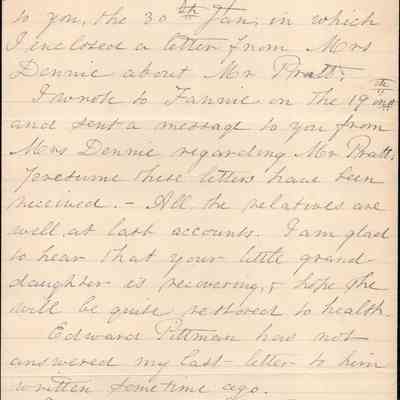 to you, the 30th Jan, in which
I enclosed a letter from Mrs
Dennie about Mr Pratt.
I wrote to Fannie on the 19th inst
and sent a message to you from
Mrs Dennie regarding Mr Pratt.
I presume these letters have been
received. - All the relatives are
well at last accounts. I am glad
to hear that your little grand
daughter is recovering, & hope she
will be quite restored to health.
Edward Pittman has not
answered my last letter to him
written sometime ago.